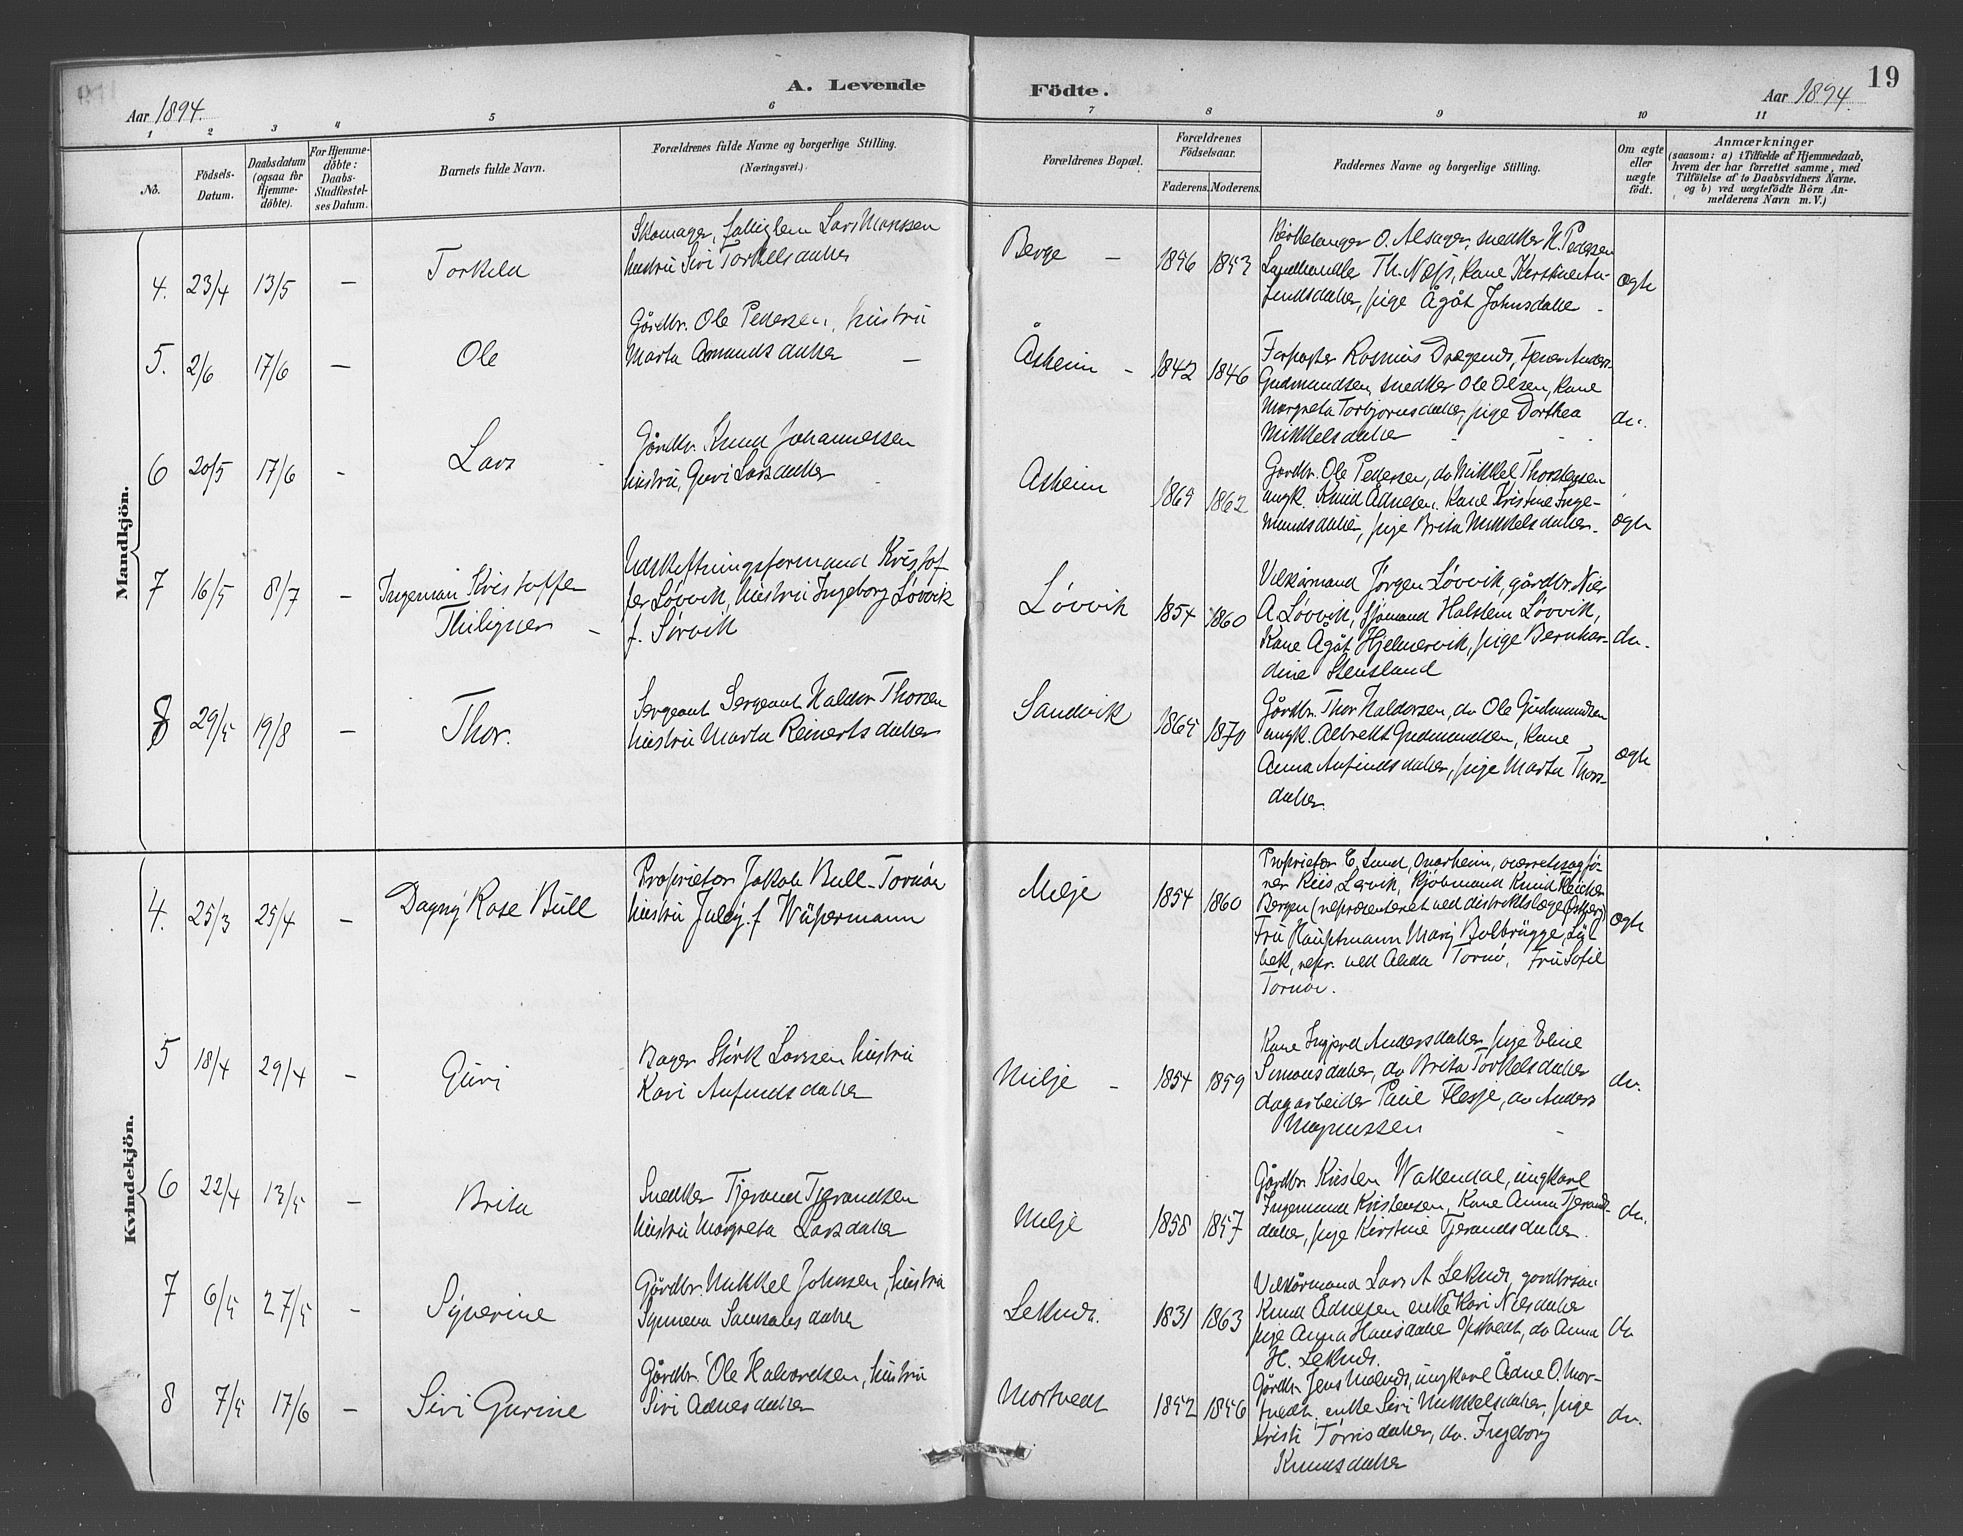 A. Levende Födte.
19
Aar 1894.
Aar 1894.
1 2 3 4 5 6 7 8 9 10 11
No.
Födsels-Datum.
Daabsdatum (ogsaa for Hjemme-döbte).
For Hjemme-döbte: Daabs-Stadfæstel-ses Datum.
Barnets fulde Navn.
Forældrenes fulde Navne og borgerlige Stilling.
(Næringsvei.)
Forældrenes Bopæl.
Forældrenes Födselsaar.
Faderens. Moderens.
Faddernes Navne og borgerlige Stilling.
Om ægte eller uægte födt.
Anmærkninger
(saasom: a) i Tilfælde af Hjemmedaab,
hvem der har forrettet samme, med
Tilföielse af to Daabsvidners Navne.
og b) ved uægtefödte Börn An-
melderens Navn m. V.)
Mandkjön.
4. 23/4 13/5 — Torkild
Skomager,
hustru Siri Torkelsdatter
Berge — 1856 1853
Kirkesanger O. Alsager, snedker N. Pedersen
Landhandler Th. Næss, Kone Kirstine An-
findsdatter, pige Ågåt Johnsdatter
ægte
5. 2/6 17/6 — Ole
Gårdbr. Ole Pedersen, hustru
Marta Amundsdatter —
Åsheim — 1842 1846
Forpagter Rasmus Drægends, Anders
Gudmundsen, snedker Ole Olsen, Kone
Margreta Torbjørnsdatter, pige Dorthea
Mikkelsdatter
do.
6 20/5 17/6 - Lars
Gårdbr. Knud Johannessen
hustru, Guri Larsdatter
Asheim 1869 1862
Gårdbr. Ole Pedersen, do Mikkel Thorstensen
ungk. Knud Ådnesen. Kone Kristine Inge-
mundsdatter, pige Brita Mikkelsdatter.
ægte
7 16/5 8/7 — Ingeman Kristoffer
Thiligner —
Udskiftningsformand Kristof-
fer Løvvik, hustru Ingeborg Løvvik
f. Sørvik
Løvvik 1854 1860
Vilkårmand Jørgen Løvvik, gårdbr. Nils
A Løvvik, sjømand Halstein Løvvik,
Kone Ågåt Hjelmervik, pige Bernhar-
dine Stensland
do.
8 29/5 19/8 — Thor.
Sergeant Sergeant Haldor Thorsen
hustru Marta Reinertsdatter
Sandvik 1865 1870
Gårdbr. Thor Haldorsen, do Ole Gudmundsen
ungk. Albrekt Gudmundsen, Kone
Anna Anfindsdatter, pige Marta Thors-
datter.
ægte
Kvindekjön.
4. 25/3 25/4 — Dagny Rose Bull
Proprietær Jakob Bull-Tornøe
hustru July f. Wüpermann
Milje 1854 1860
Proprietær E. Lund, Onarheim, overretssagfø-
rer Riis, Lervik, Kjøbmand Knud
Bergen (repræsenteret ved distriktslæge
Fru Hauptmann Mary Bolbrügge, Lü-
bek, repr. ved Alida Tornø, Fru Sofie
Tornøe.
ægte
5 18/4 29/4 — Guri
Bager Størk Larssen hustru
Kari Anfindsdatter
Milje — 1854 1859
Kone Ingjerd Andersdatter, pige Eline
Simonsdatter, do Brita Torkelsdatter
dagarbeider Paul Flesje, do Anders
Magnussen
do.
6 22/4 13/5 — Brita
Snedker Tjerand Tjerandsen
hustru Margreta Larsdatter
Milje 1858 1857
Gårdbr Kristen Vattendal, ungkarl
Ingemund Kristensen, Kone Anna Tjerands-
datter, pige Kirstine Tjerandsdatter.
do.
7 6/5 27/5 - Syverine
Gårdbr. Mikkel Johnsen, hustru
Synneva Samsonsdatter
Leknes. 1831 1863
Vilkårmand Lars A Leknes, gardbrsøn
Knud Ådnesen enke Kari Nilsdatter
pige Anna Hansdatter Opstvedt, do Anna
H. Leknes.
do
8 7/5 17/6 — Siri Gurine
Gårdbr. Ole Halvordsen, hustru
Siri Adnesdatter
Mortvedt 1852 1856
Gårdbr Jens Malmes, ungkarl Ådne O. Mor-
tvedt, enke Siri Mikkelsdatter, pige
Kristi Tørrisdatter, do. Ingeborg
Knudsdatter
do.